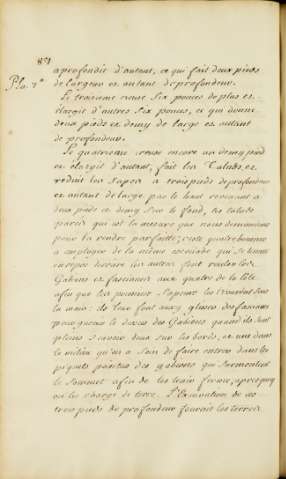 851
Pla. 7e
aprofondit d'autant, ce qui fait deux pieds
de largeur et autant de profondeur.
Le troisieme creuse Six pouces de plus et
élargit d'autres Six pouces, ce qui donne
deux pieds et demy de large et autant
de profondeur.
Le quatrieme creuse encore un demy pied
et élargit d'autant, fait les Taluds, et
reduit les Sapes à trois pieds de profondeur
et autant de large par le haut revenant à
deux pieds et demy Sur le fond, les taluds
parez qui est la mesure que nous demandons
pour la rendre parfaitte; cette quatre hommes
à employer de la même escouade qui se tiennent
derriere les autres font rouler les
Gabions et fascines aux quatre de la tête
afin que les premiers Sapeurs les trouvent sous
la main: ils leur font aussy glisser des fascines
pour garnir le dessus des Gabions quand ils sont
pleins Sçavoir deux sur les bords, et une dans
le milieu qu'on a Soin de faire entrer dans les
piquets pointus des gabions qui Surmontent
le Sommet afin de les tenir ferme, apres quoy
on les charge de terre. L'Excavation de ces
trois pieds de profondeur fournit les terres